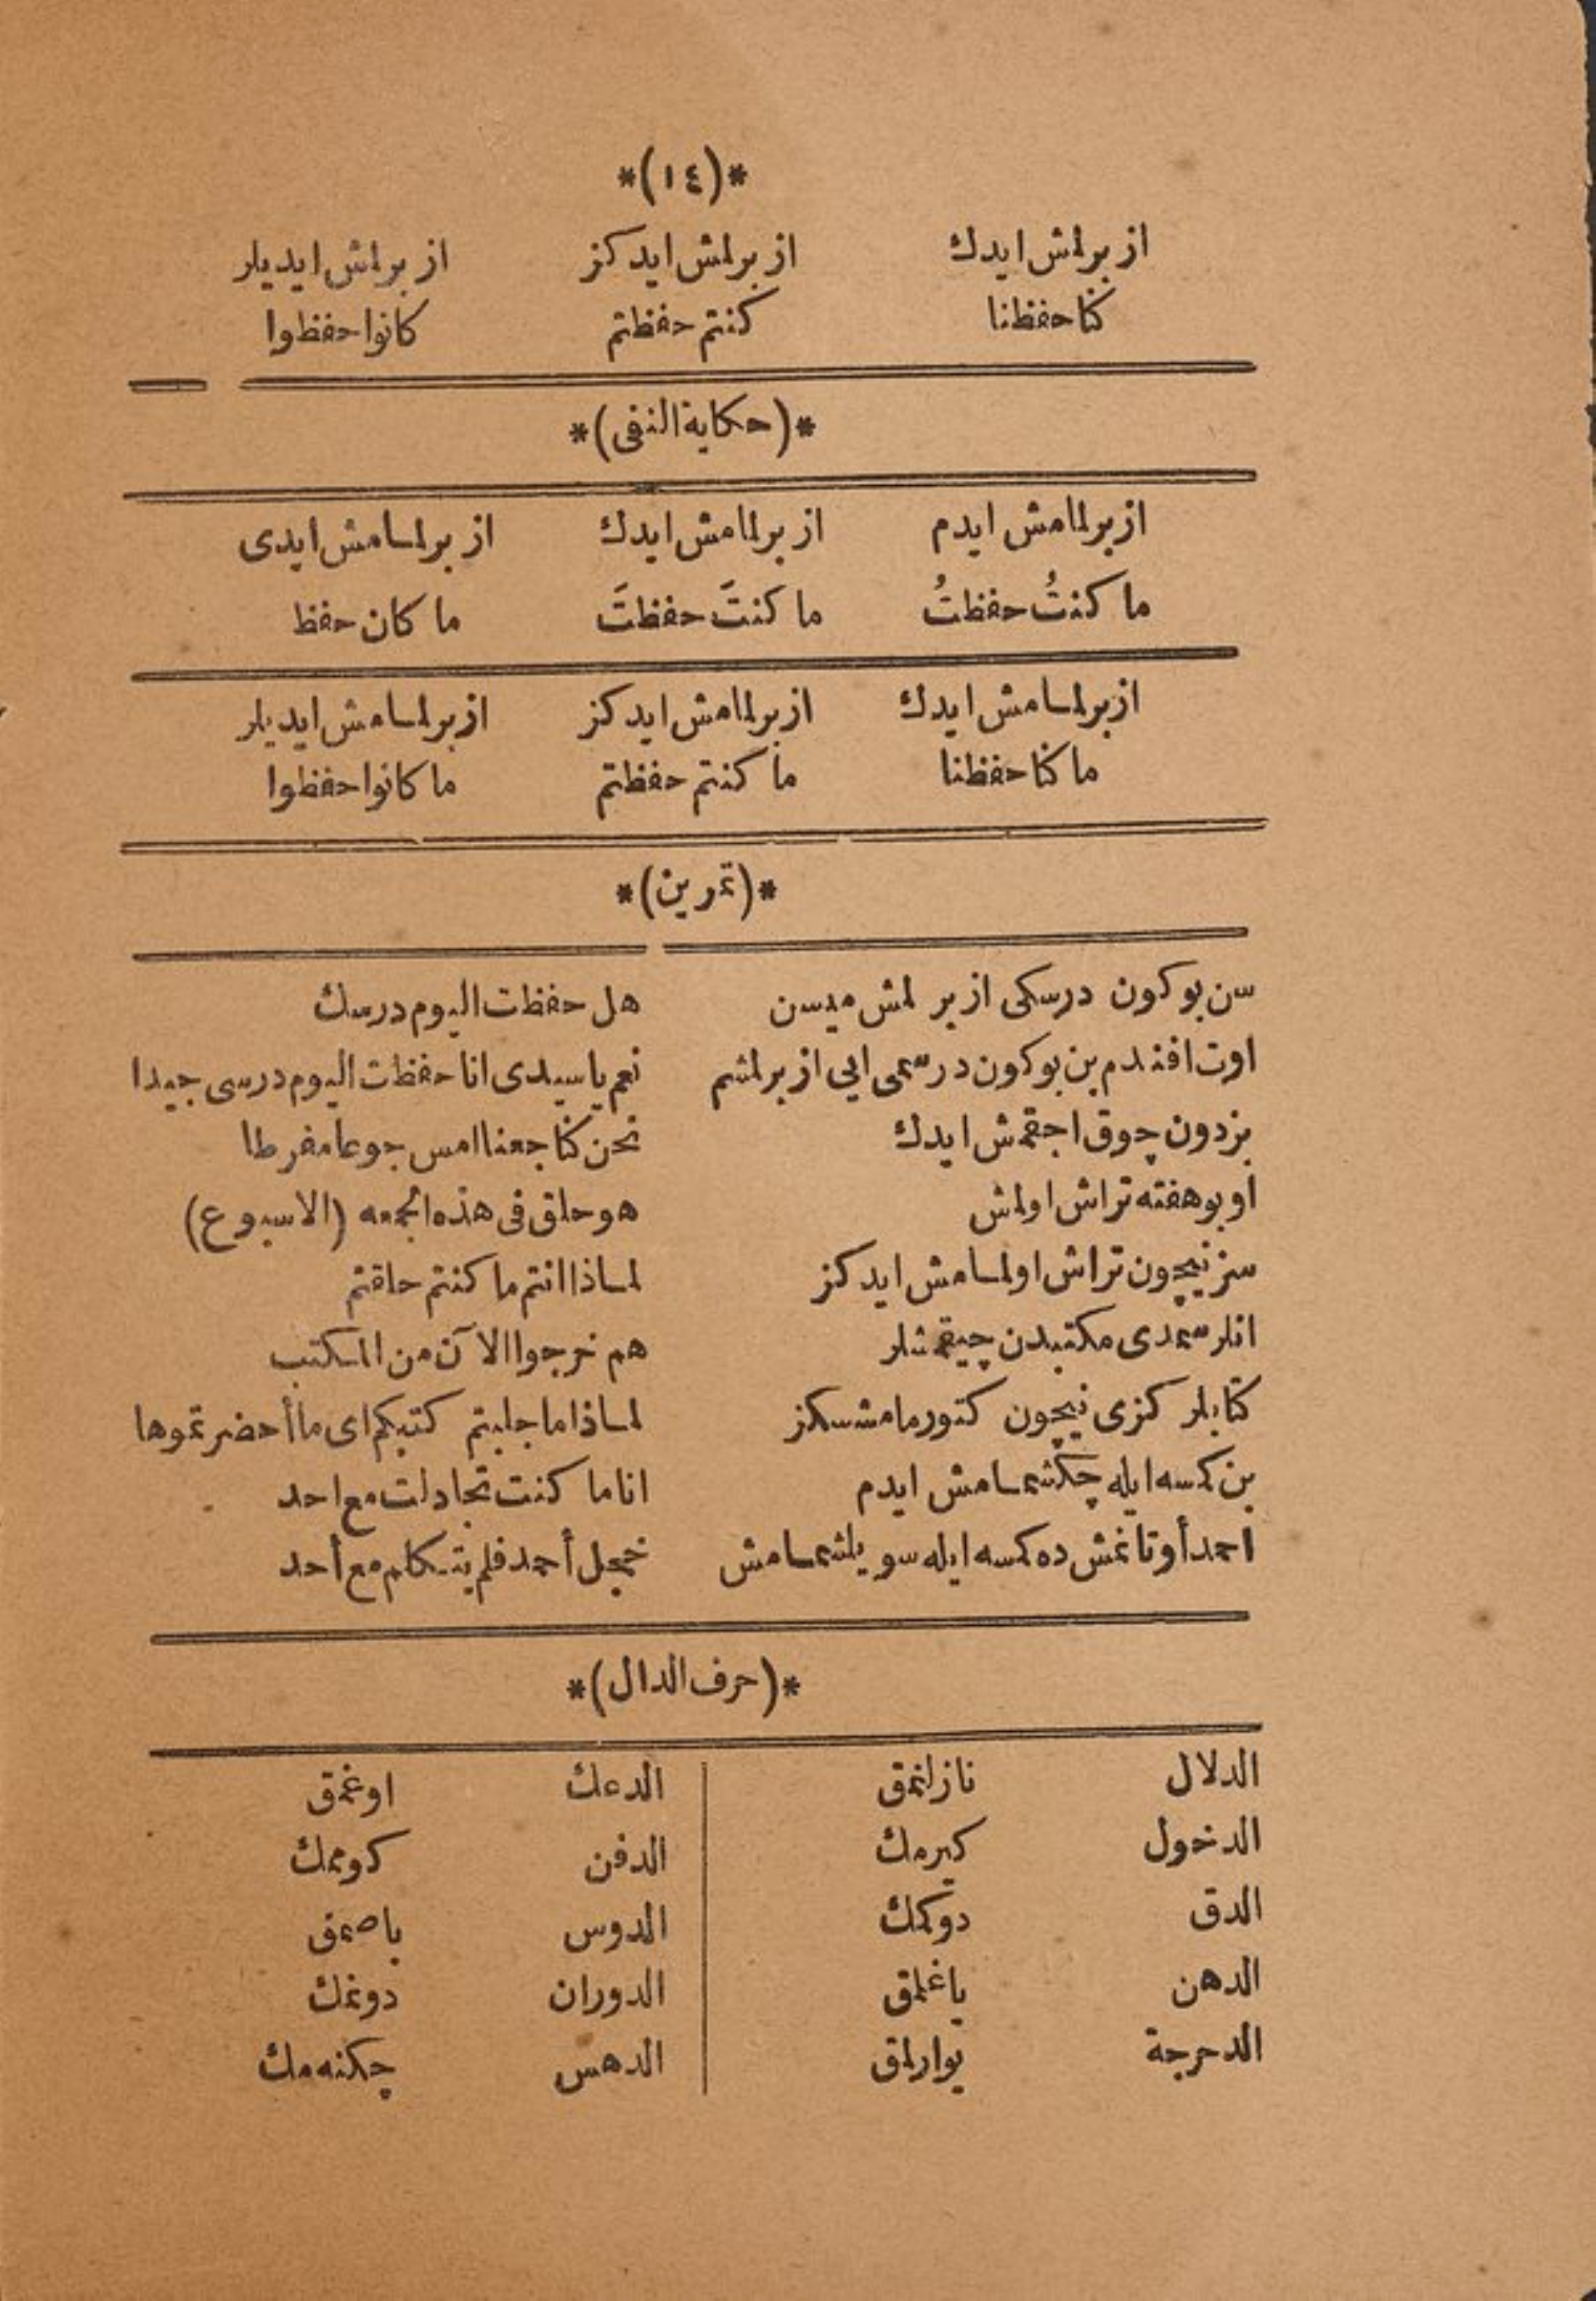 *(١٤)*
ازبرلمش ايدك ازبرلمش ايدكز ازبرلمش ايديلر
كنا حفظنا كنتم حفظتم كانوا حفظوا
*(حكاية النفى)*
ازبرلمامش ايدم ازبرلمامش ايدك ازبرلمامش ايدى
ما كنتُ حفظتُ ما كنتَ حفظتَ ما كان حفظ
ازبرلمامش ايدك ازبرلمامش ايدكز ازبرلمامش ايديلر
ما كنا حفظنا ما كنتم حفظتم ما كانوا حفظوا
*(تمرين)*
سن بو كون درسكى ازبر لمش ميسن هل حفظت اليوم درسك
اوت افندم بن بو كون درسمى ايى ازبرلمشم نعم يا سيدى انا حفظت اليوم درسى جيدا
بز دون چوق اجقمش ايدك نحن كنا جعنا امس جوعا مفرطا
او بو هفته تراش اولمش هو حلق فى هذه الجمعه (الاسبوع)
سز نيچون تراش اولمامش ايدكز لماذا انتم ما كنتم حلقتم
انلر شمدى مكتبدن چيقمشلر هم خرجوا الآن من المكتب
كتابلر كزى نيچون كتورمامشسكز لماذا ما جلبتم كتبكم اى ما أحضرتموها
بن كمسه ايله چكشمامش ايدم انا ما كنت تجادلت مع احد
احمد أوتانمش ده كمسه ايله سويلشمامش خجل أحمد فلم يتكلم مع أحد
*(حرف الدال)*
الدلال نازلنمق الدعك اوغمق
الدخول كيرمك الدفن كوممك
الدق دوكمك الدوس باصمق
الدهن ياغلمق الدوران دونمك
الدحرجة يوارلمق الدهس چكنه مك